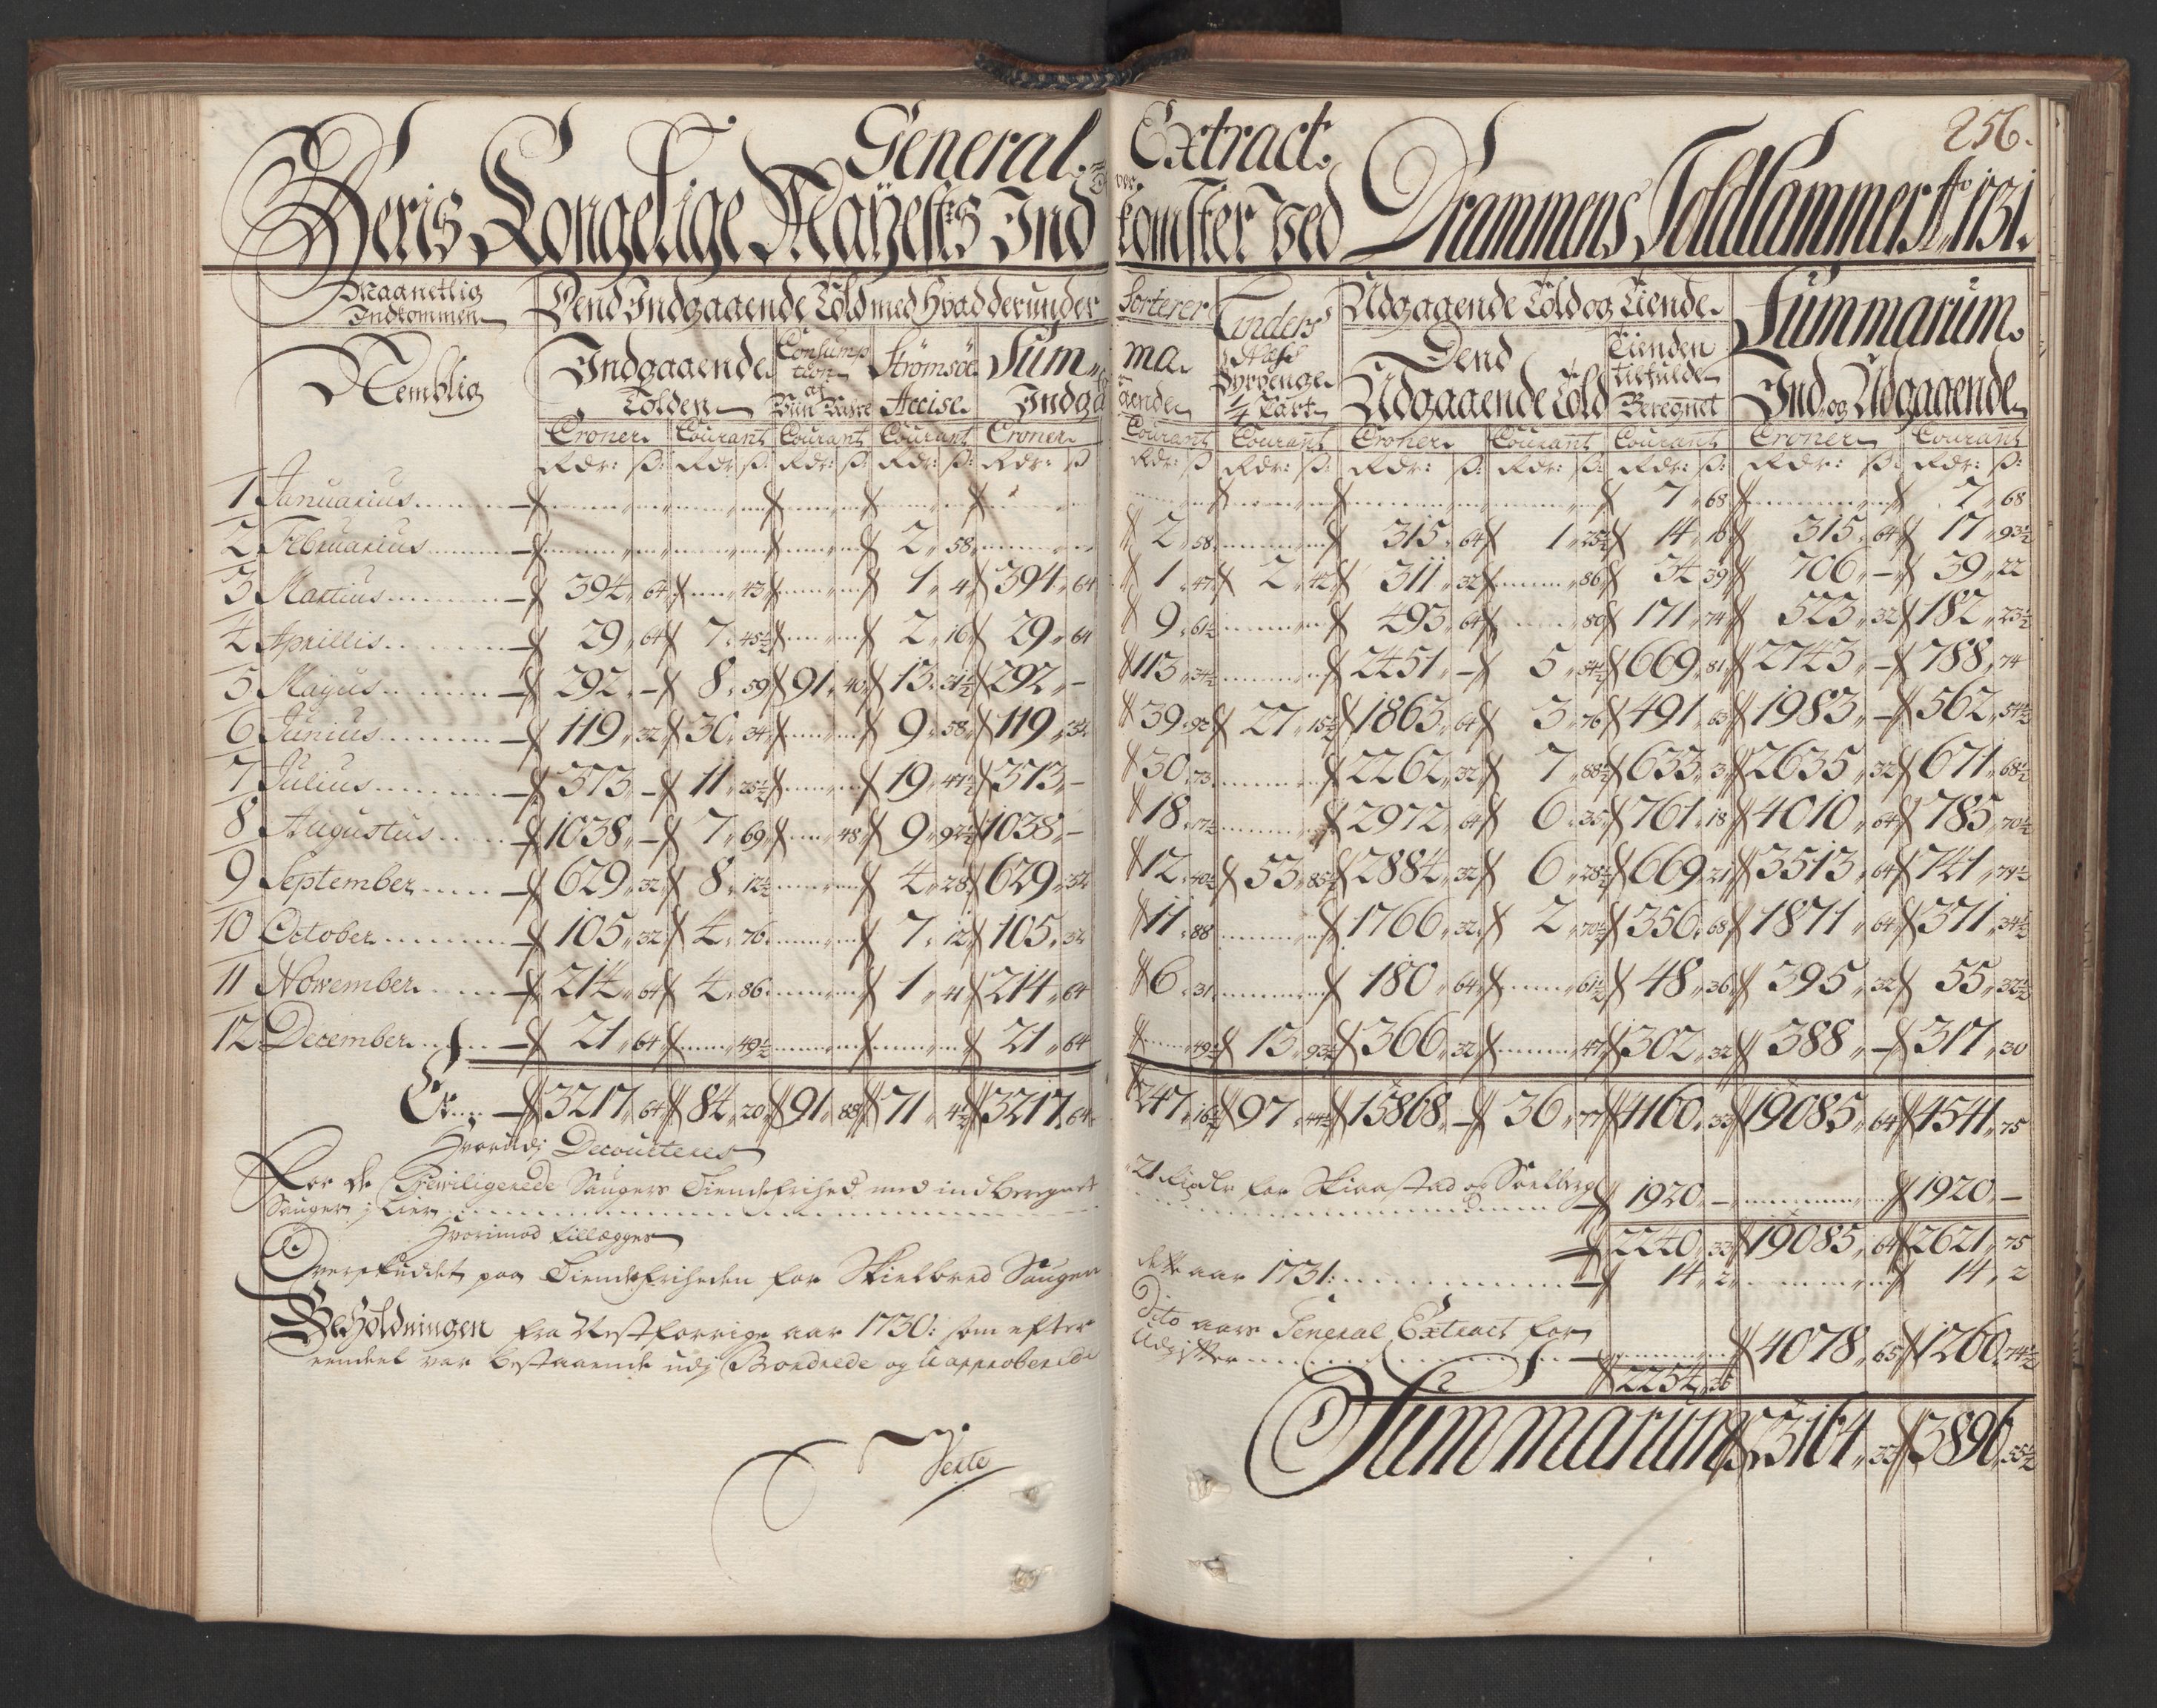 256.
General Extract.
Over
Heris Kongelige Mayestts Ind komster Ved Drammens Toldkammer Ao 1731.
Maanetlig Indkommen
Dend Indgaaende Told med Hvad derunder Sorterer
Tinders Næss Fyrpenge ¼ Part
Udgaaende Told og Tiende
Summarum.
Nemblig
Indgaaende Tolden
Consumption af Viin Vahre
Strømsöe Accise
Sum ma. Indga aende
Dend Udgaaende Told
Tienden tilfulde Beregnet
Ind og Udgaaende
Croner Courant Courant Courant Croner Courant Courant Croner Courant Courant Croner Courant
Rdr: ß: Rdr: ß: Rdr: ß: Rdr: ß: Rdr: ß Rdr: ß Rdr: ß: Rdr: ß: Rdr: ß: Rdr: ß: Rdr: ß: Rdr: ß:
1 Januarius 7 68 7 68
2 Februarius 2 58 2 58 315 64 1 25½ 14 10 315 64 17 93½
3 Martius 394 64 43 1 4 394 64 1 47 2 42 311 32 86 34 39 706 – 39 22
4 Aprillis 29 64 7 45½ 2 16 29 64 9 61½ 493 64 80 171 74 523 32 182 23½
5 Mayus 292 – 8 59 91 40 13 31½ 292 – 113 34½ 2451 – 5 54½ 669 81 2743 – 788 74
6 Junius 119 32 30 34 9 58 119 32 39 92 27 15½ 1863 64 3 76 491 63 1983 – 562 54½
7 Julius 373 – 11 25½ 19 47½ 373 – 30 73 2262 32 7 88½ 633 3 2635 32 671 68½
8 Augustus 1038 – 7 69 48 9 92½ 1038 – 18 17½ 2972 64 6 35 761 18 4010 64 785 70½
9 September 629 32 8 12½ 4 28 629 32 12 40½ 53 85½ 2884 32 6 28½ 669 21 3513 64 741 79½
10 October 105 32 4 76 7 12 105 32 11 88 1766 32 2 70½ 356 68 1871 64 371 34½
11 November 214 64 4 86 1 41 214 64 6 31 180 64 61½ 48 36 395 32 55 32½
12 December 21 64 49½ 21 64 49½ 13 93½ 366 32 47 302 32 388 – 317 30
Er 3217 64 84 20 91 88 71 4½ 3217 64 247 16½ 97 44½ 15868 – 36 77 4160 33 19085 64 4541 75
Hvorudj Decourteres
For de Privilegerede Saugers Tiendefrihed med indberegnet 21 Rixdlr for Skiaastad og Soelberg
Sauger j Lier 1920 – 1920 –
2240 33 19085 64 2621 75
Hvorimod tillægges
Overskuddet paa Tiendefriheden for Skielbred Saugen dette aar 1731: 14 2 14 2
Beholdningen fra Nestforrige aar 1730: som efter Dito aars General Extract for
eendeel var bestaaende udj Bordrede og Uapproberede Udgifter 4078 65 1260 74½
2254 35
Summarum 23164 33 3896 55½
Verte